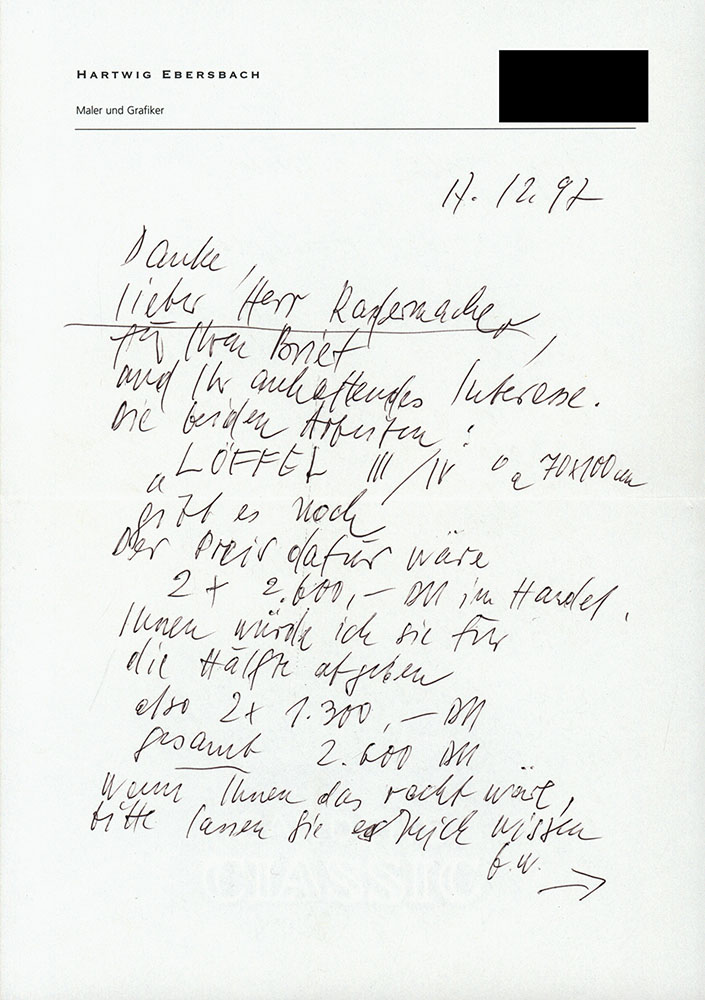 HARTWIG EBERSBACH
Maler und Grafiker
17.12.97
Danke,
lieber Herr Radermacher,
für Ihren Brief
und Ihr anhaltendes Interesse.
Die beiden Arbeiten:
„LÖFFEL III/IV“ a 70x100 cm
gibt es noch
Der Preis dafür wäre
2 x 2.600,- DM im Handel.
Ihnen würde ich sie für
die Hälfte abgeben
also 2x 1.300,- DM
gesamt 2.600 DM
Wenn Ihnen das recht wäre,
bitte lassen Sie es mich wissen
b.w. →